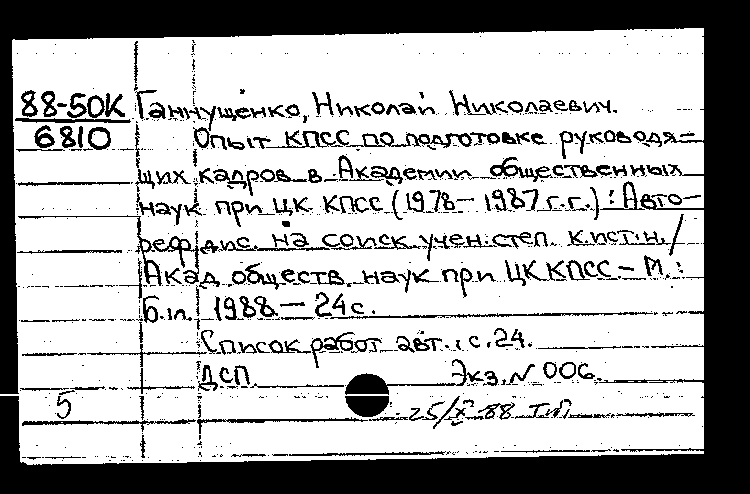 88-50К Ганнущенко, Николай Николаевич.
6810 Опыт КПСС по подготовке руководя=
щих кадров в Академии общественных
наук при ЦК КПСС (1978 - 1987 г.г.) : Авто-
реф дис. на соиск. учен. степ. к.ист.н. /
Акад. обществ. наук при ЦК КПСС - М. :
Б.и. 1988. - 24 с.
Список работ авт. : с. 24.
ДСП. Экз. N 006.
5 25/X-88